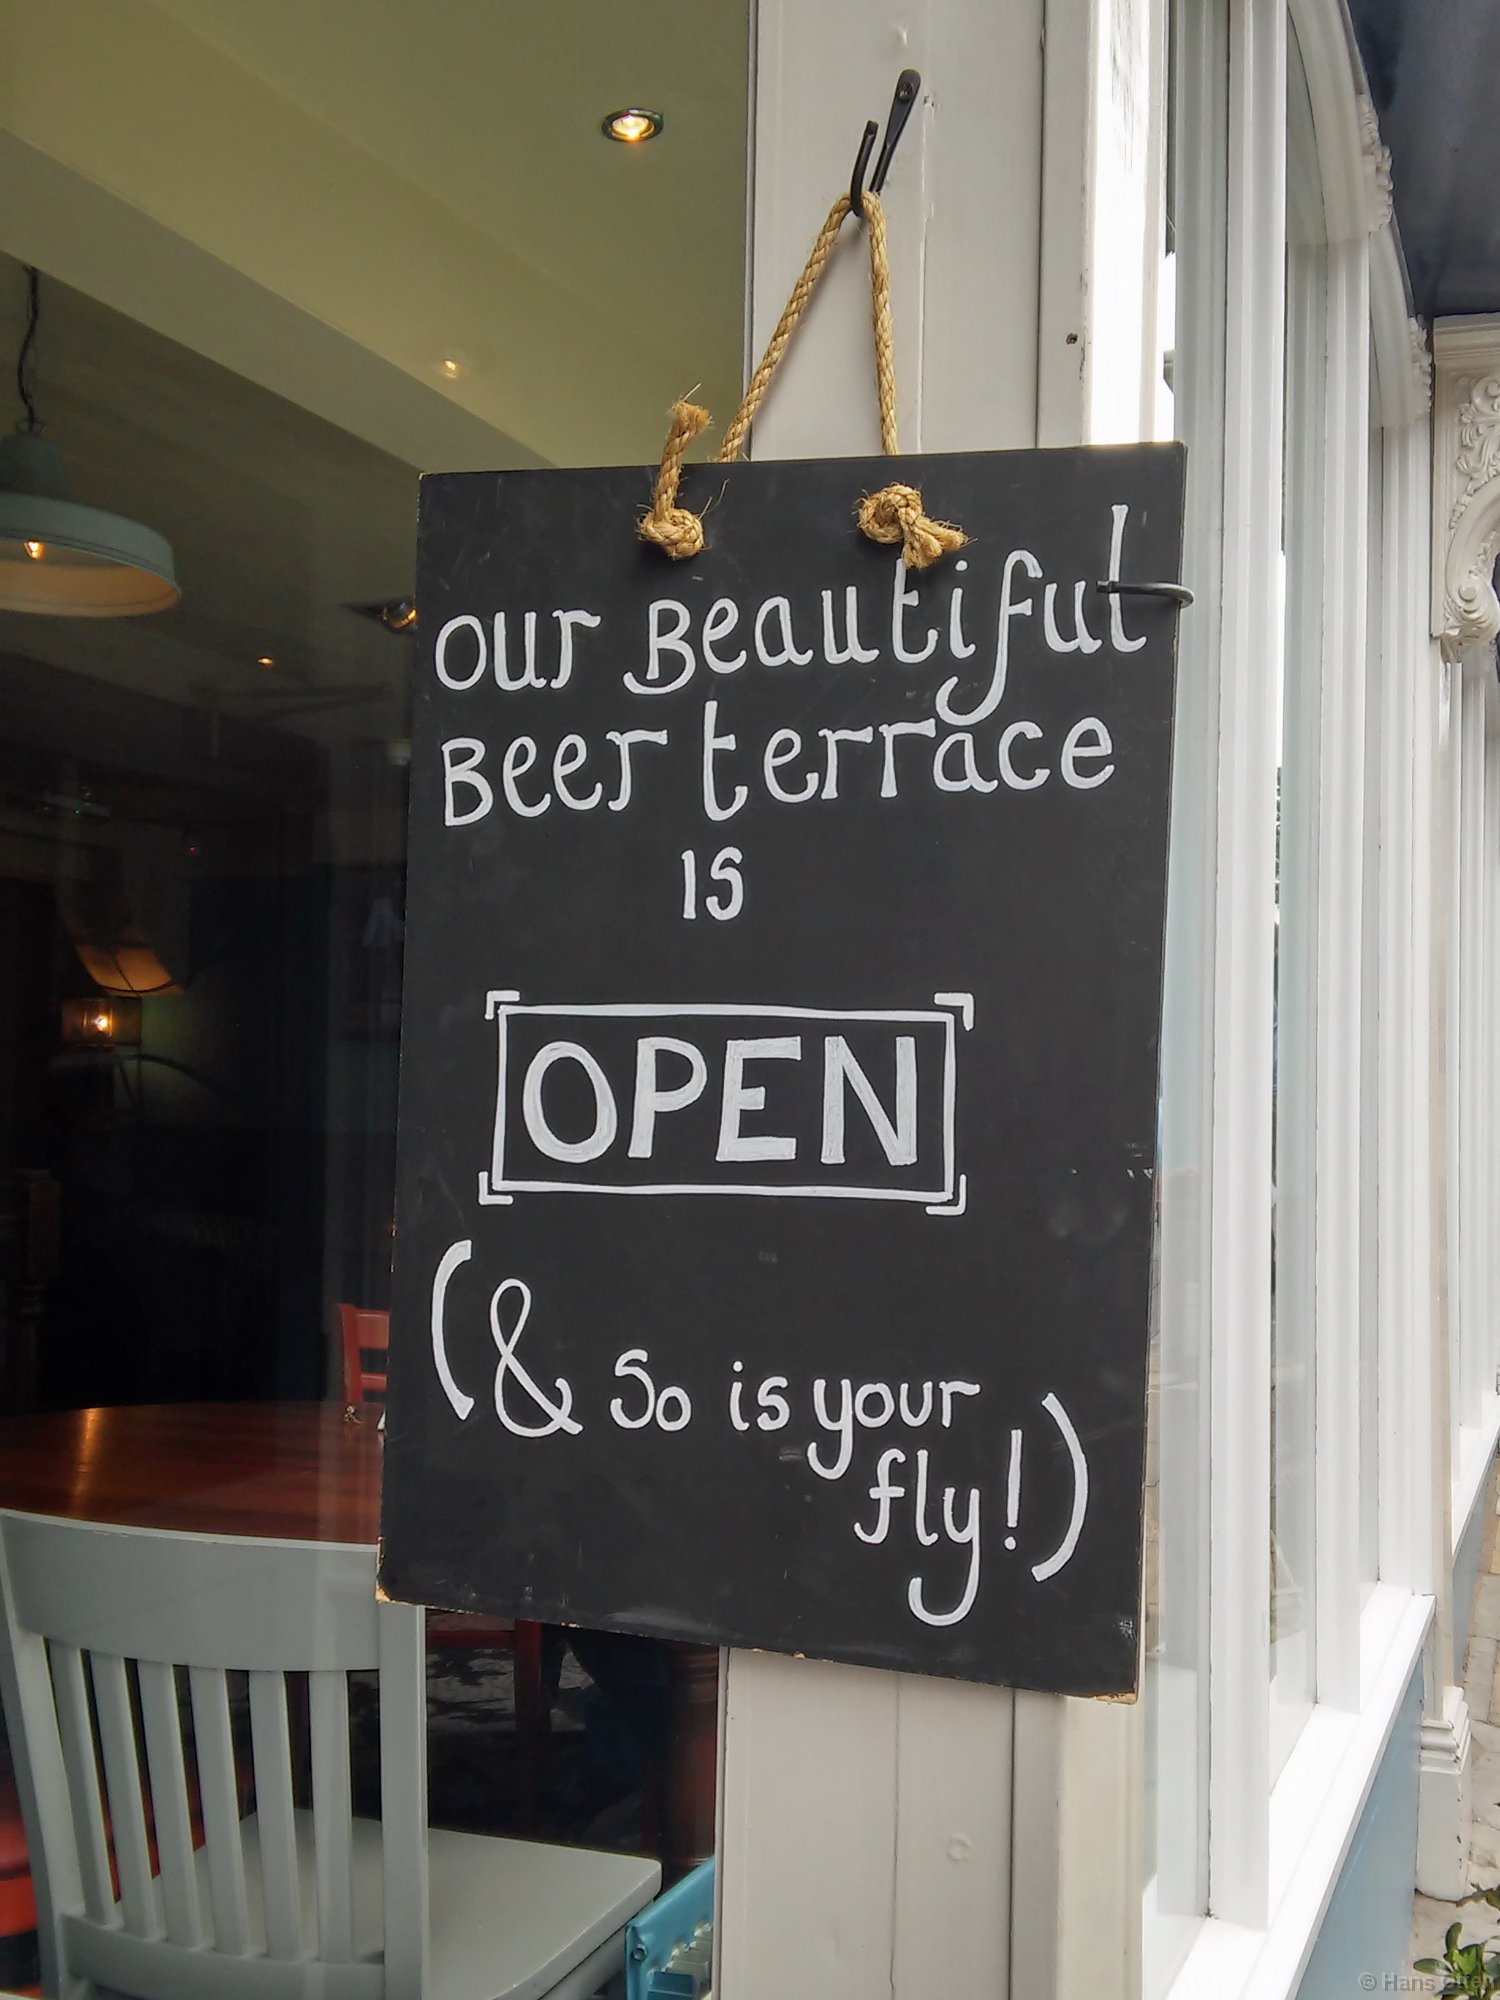 our Beautiful
Beer terrace
is
OPEN
(& So is your
fly!)
© Hans